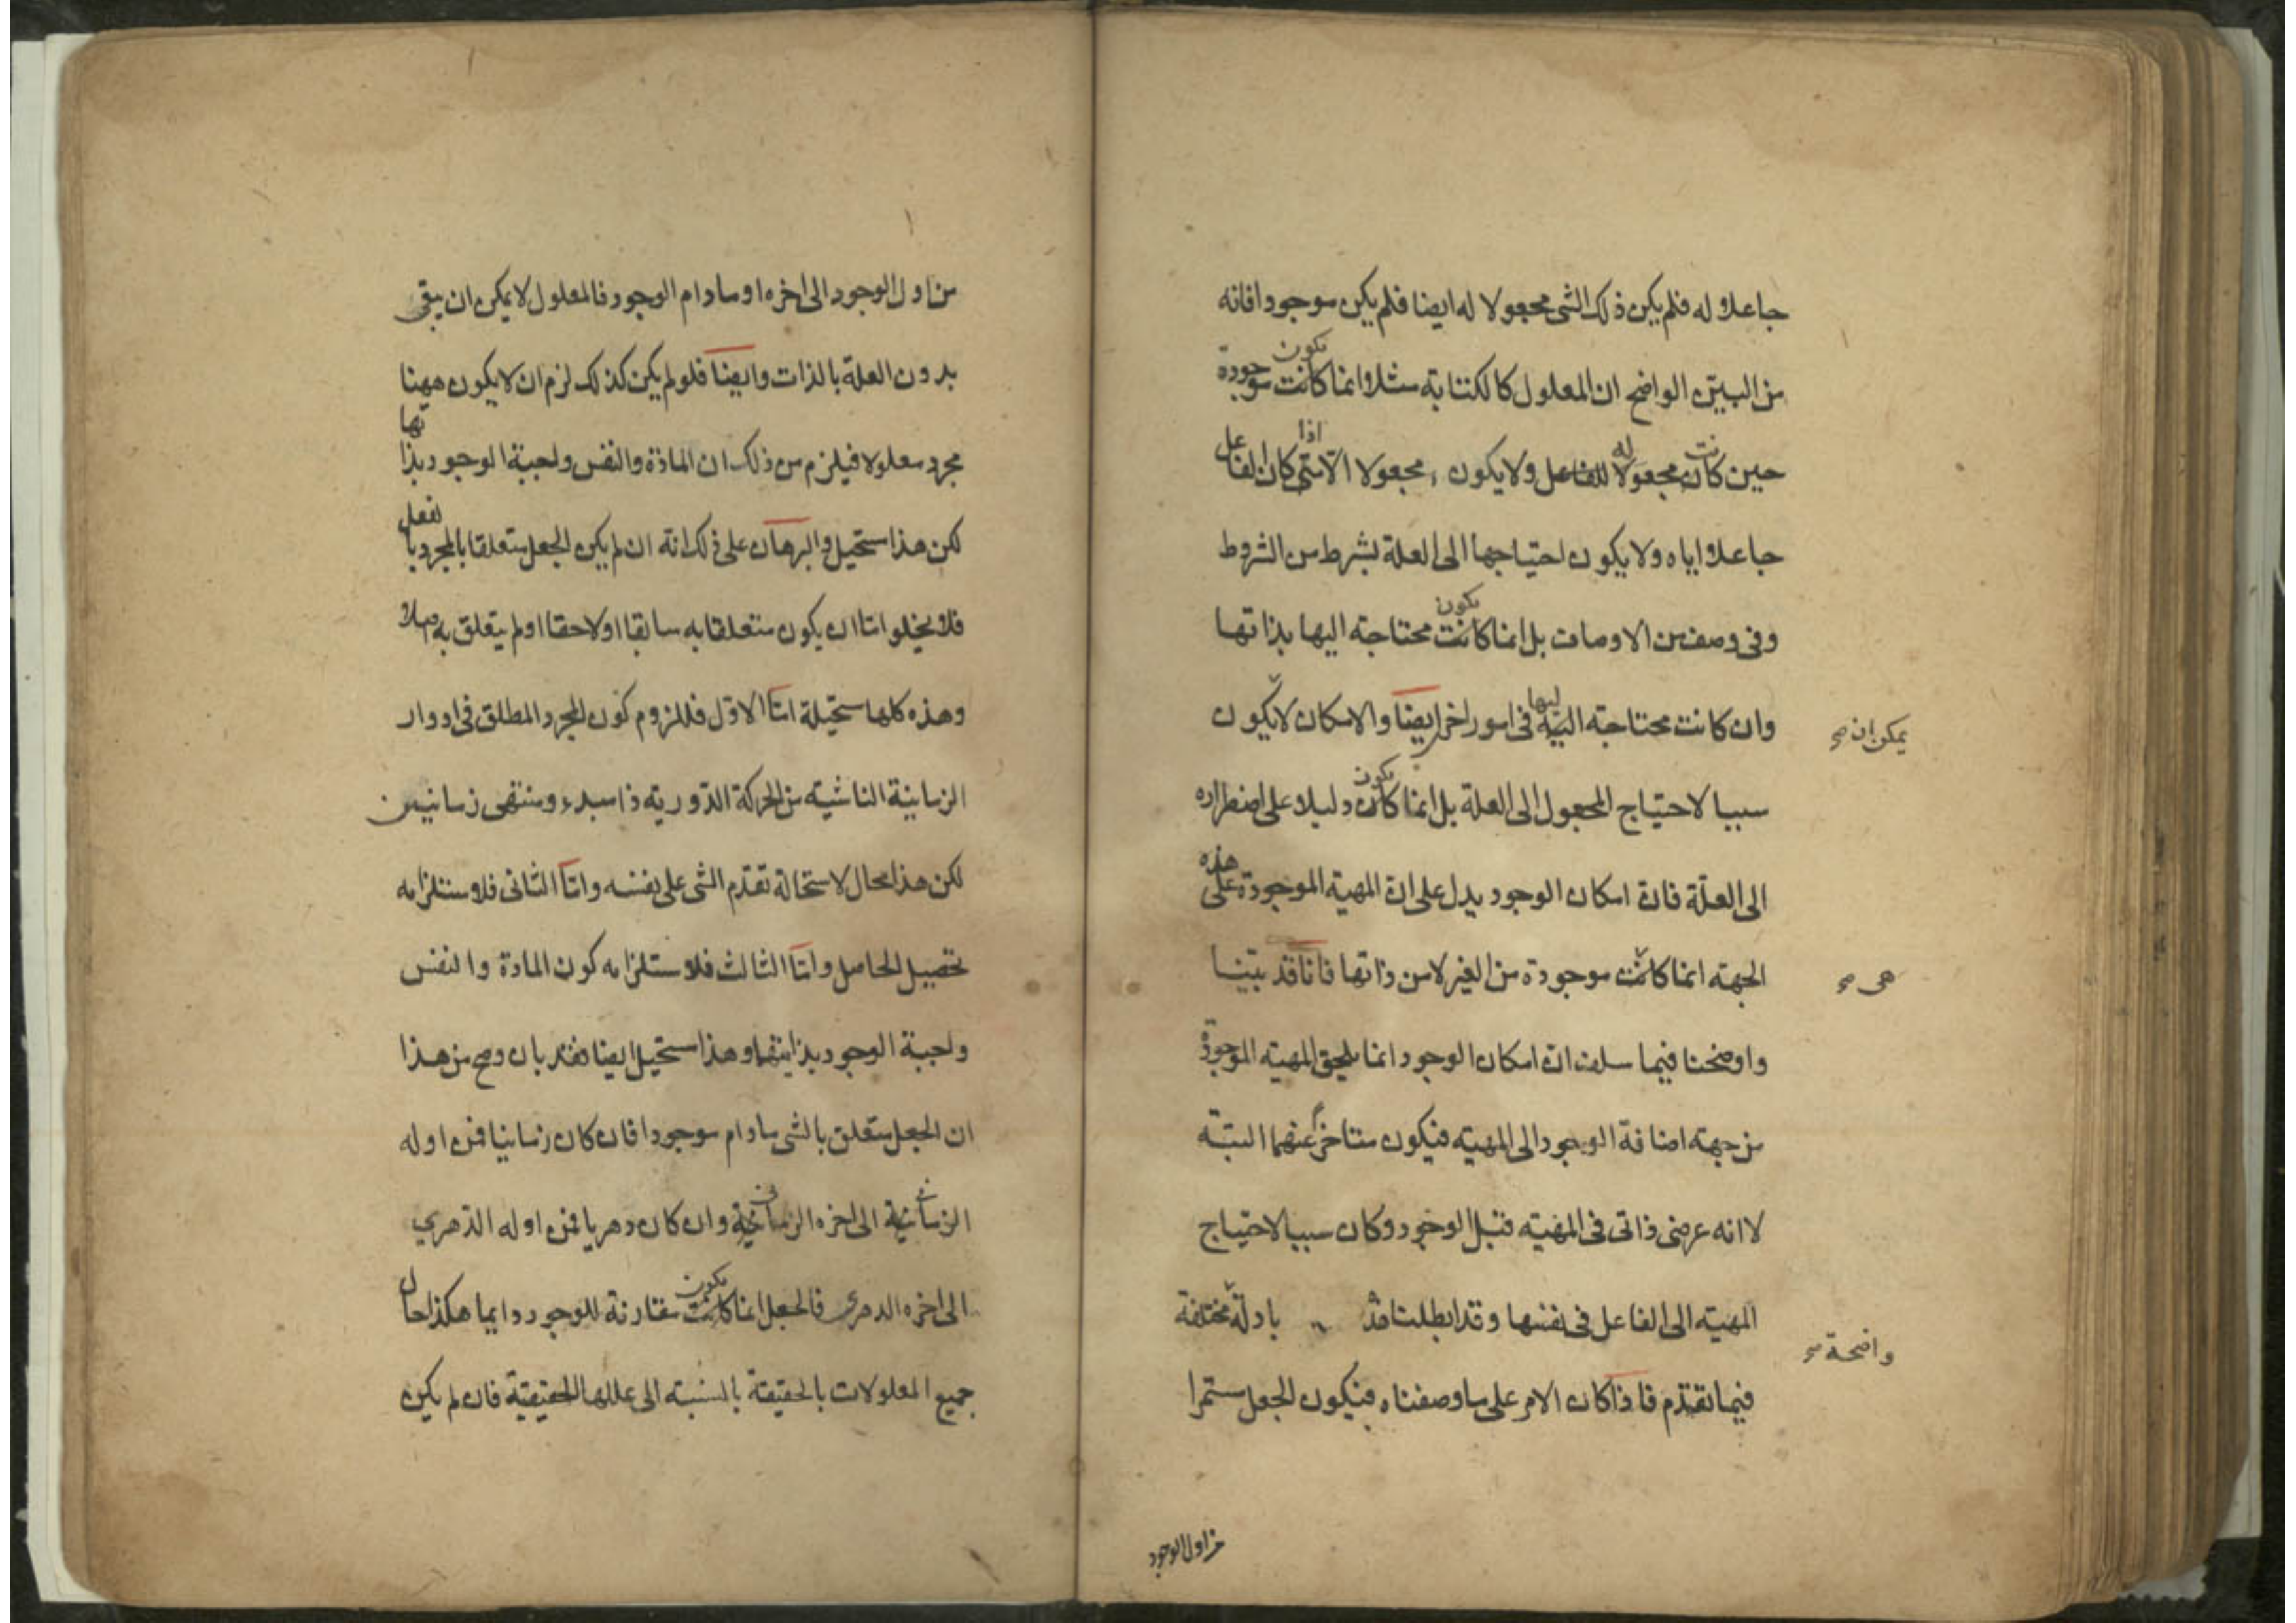 جاعلا له فلم يكن ذلك الشى مجعولا له ايضا فلم يكن موجودا فانه
يكون
من البين الواضح ان المعلول كالكتابة مثلا انما كانت موجودة
نت له اذا عل
حين كان مجعولا للفاعل ولا يكون مجعولا الا متى كان الفا
جاعلا اياه ولا يكون احتياجها الى العلة بشرط من الشروط
يكون
وفى وصف من الاوصاف بل انما كانت محتاجة اليها بذاتها
ليها
وان كانت محتاجة اليه فى امور اخر ايضا والامكان لا يكون
يمكن ان صح
يكون
سببا لاحتياج المجعول الى العلة بل انما كان دليلا على اضطراره
هذه
الى العلّة فانّ امكان الوجود يدل على ان المهية الموجودة على
الجهة انما كانت موجودة من الغير لا من ذاتها فانا قد بيّنا
هى صح
واوضحنا فيما سلف انّ امكان الوجود انما يلحق المهية الموجودة
من جهة اضافة الوجود الى المهية فيكون متاخرا عنهما البتّة
لا انه عرضى ذاتى فى المهية قبل الوجود وكان سببا لاحتياج
المهية الى الفاعل فى نفسها وقد ابطلنا بادلّة مختلفة
واضحة صح
فيما تقدّم فاذا كان الامر على ما وصفناه فيكون الجعل مستمرا
من اول الوجود
من اول الوجود الى اخره او مادام الوجود فالمعلول لا يمكن ان يبقى
بدون العلة بالذات وايضا فلو لم يكن كذلك لزم ان لا يكون ههنا
تها
مجرد معلولا فيلزم من ذلك ان المادة والنفس واجبة الوجود بذا
لفعل
لكن هذا مستحيل والبرهان على ذلك انه ان لم يكن الجعل متعلقا بالمجرد با
فلا يخلو امّا ان يكون متعلقا به سابقا او لاحقا او لم يتعلق به اصلا
وهذه كلها مستحيلة امّا الاوّل فللزوم كون المجرد المطلق فى ادوار
الزمانية الناشية من الحركة الدّورية ذا مبدء ومنتهى زمانيين
لكن هذا محال لاستحالة تقدّم الشى على نفسه وامّا الثانى فلاستلزامه
تحصيل الحاصل وامّا الثالث فلاستلزامه كون المادة والنفس
واجبة الوجود بذاتيهما وهذا مستحيل ايضا فقد بان وصح من هذا
ان الجعل متعلق بالشى مادام موجودا فان كان زمانيا فمن اوله
الزمانية الى اخره الزمانية وان كان دهريا فمن اوله الدّهرى
يكون ل
الى اخره الدهرى فالجعل انما كانت مقارنة للوجود دايما هكذا حا
جميع المعلولات بالحقيقة بالنسبة الى عللها الحقيقيّة فان لم يكن